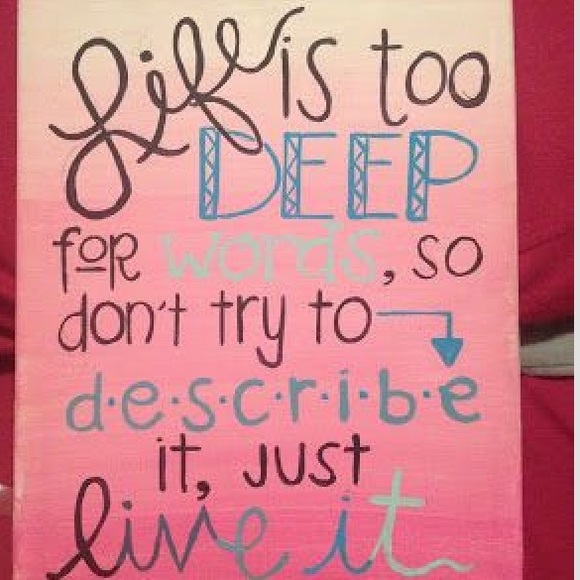 Life is too
DEEP
for words, so
don't try to
d·e·s·c·r·i·b·e
it, just
live it